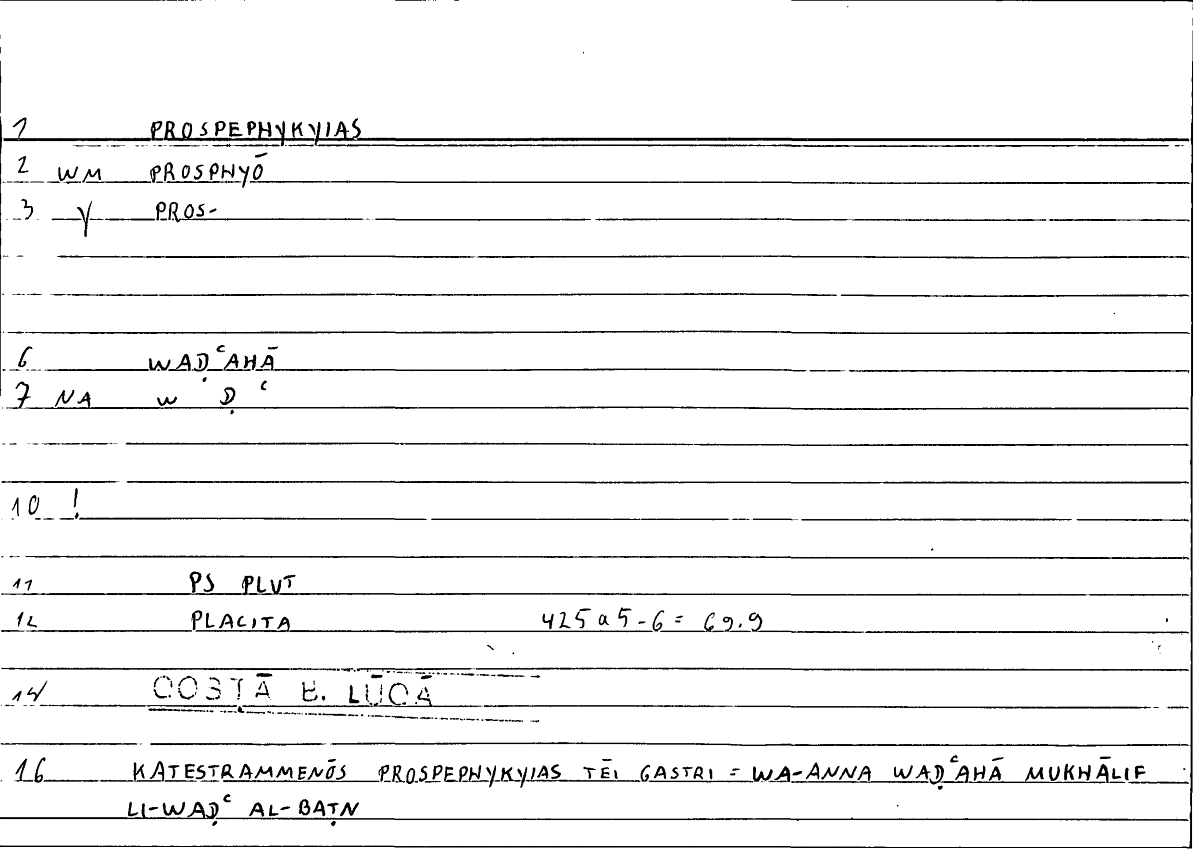 1 PROSPEPHYKYIAS
2 WM PROSPHYŌ
3 γ PROS-
6 WAḌʿAHĀ
7 NA W Ḍ ʿ
10 !
11 PS PLUT
12 PLACITA 425 a 5-6 = 69.9
14 QOSṬĀ B. LŪQĀ
16 KATESTRAMMENŌS PROSPEPHYKYIAS TĒI GASTRI = WA-ANNA WAḌʿAHĀ MUKHĀLIF
LI-WAḌʿ AL-BAṬN